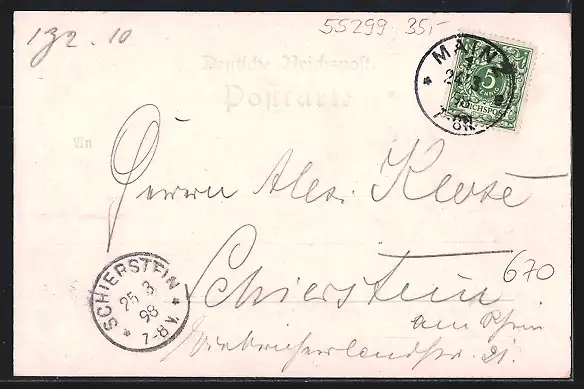 192.10
55299 35,-
MAINZ
24 3
98
7-8N.
5
REICHSPOST
Deutsche Reichspost.
Postkarte
An
Herrn Alex. Klose
Schierstein
670
am Rhein
SCHIERSTEIN
25 3
98
7-8V.